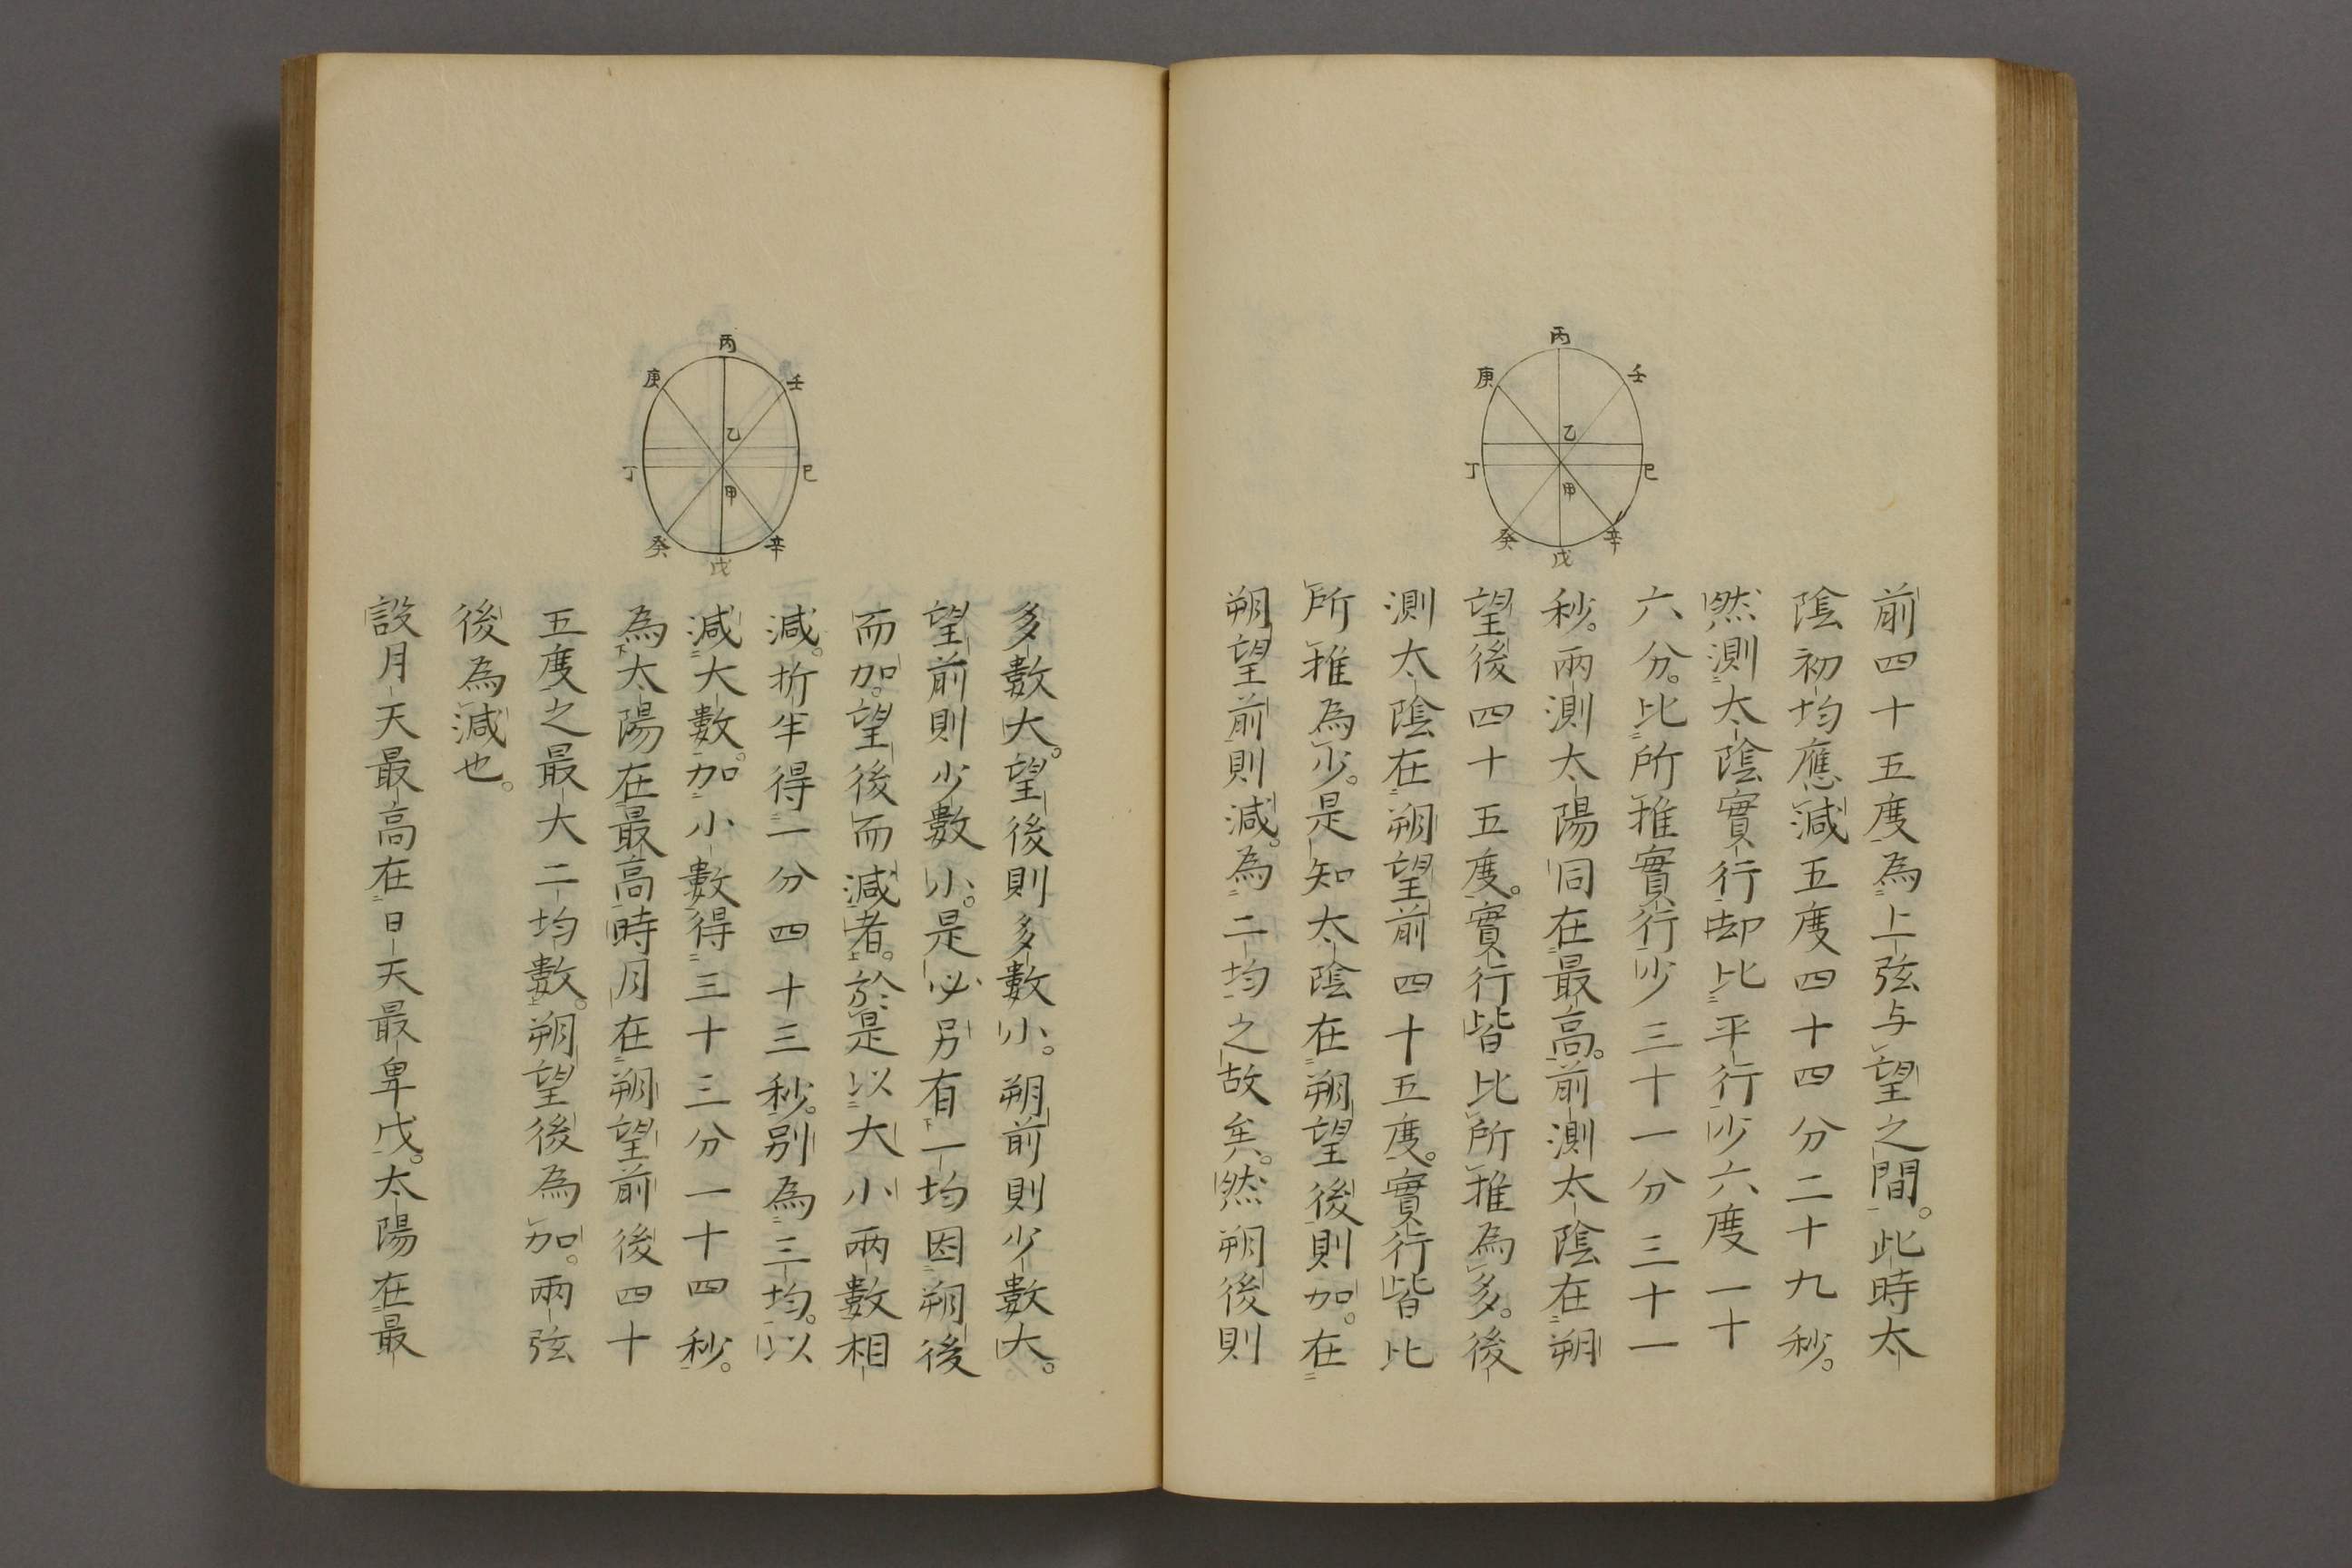 丙
庚
壬
乙
丁
巳
甲
癸
辛
戊
前四十五度為上弦与望之間。此時太
陰初均應減五度四十四分二十九秒。
然測太陰實行却比平行少六度一十
六分。比所推實行少三十一分三十一
秒。兩測太陽同在最高。前測太陰在朔
望後四十五度。實行皆比所推為多。後
測太陰在朔望前四十五度。實行皆比
所推為少。是知太陰在朔望後則加。在
朔望前則減。為二均之故矣。然朔後則
丙
庚
壬
乙
丁
巳
甲
癸
辛
戊
多數大。望後則多數小。朔前則少數大。
望前則少數小。是必另有一均因朔後
而加。望後而減者。於是以大小兩數相
減。折半得一分四十三秒。別為三均。以
減大數。加小數得三十三分一十四秒。
為太陽在最高時月在朔望前後四十
五度之最大二均數。朔望後為加。兩弦
後為減也。
設月天最高在日天最卑戊。太陽在最